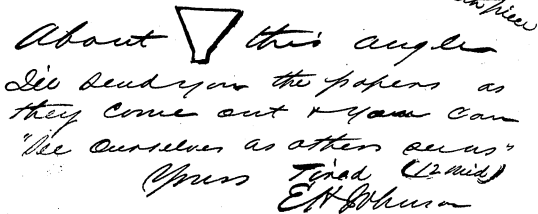 piece
About this angle
I'll send you the papers as
they come out & you can
"See ourselves as others see us"
Yours Tired (12 mid)
E H Johnson